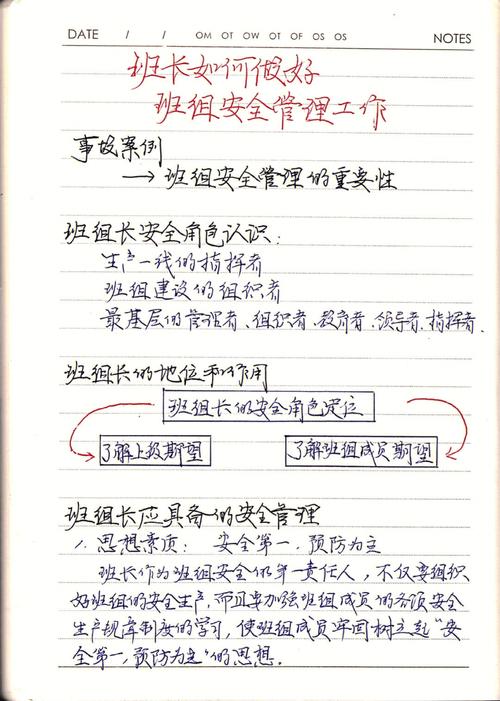 DATE / / OM OT OW OT OF OS OS NOTES
班长如何做好
班组安全管理工作
事故案例
→班组安全管理的重要性
班组长安全角色认识:
生产一线的指挥者
班组建设的组织者
最基层的管理者、组织者、教育者、领导者、指挥者.
班组长的地位和作用
班组长的安全角色定位
了解上级期望 了解班组成员期望
班组长应具备的安全管理
1. 思想素质: 安全第一,预防为主
班长作为班组安全的第一责任人,不仅要组织
好班组的安全生产,而且要加强班组成员的各项安全
生产规章制度的学习,使班组成员牢固树立起"安
全第一,预防为主"的思想.